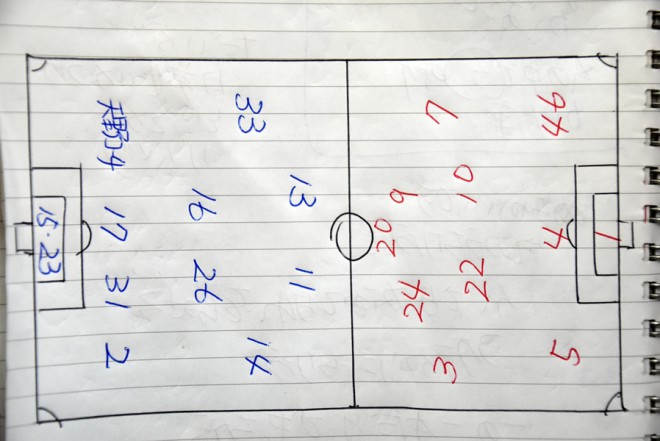 13 11
33 14
16 26
4 17 31 2
15・23
20
24 9
3 7
22 10
5 4 44
1